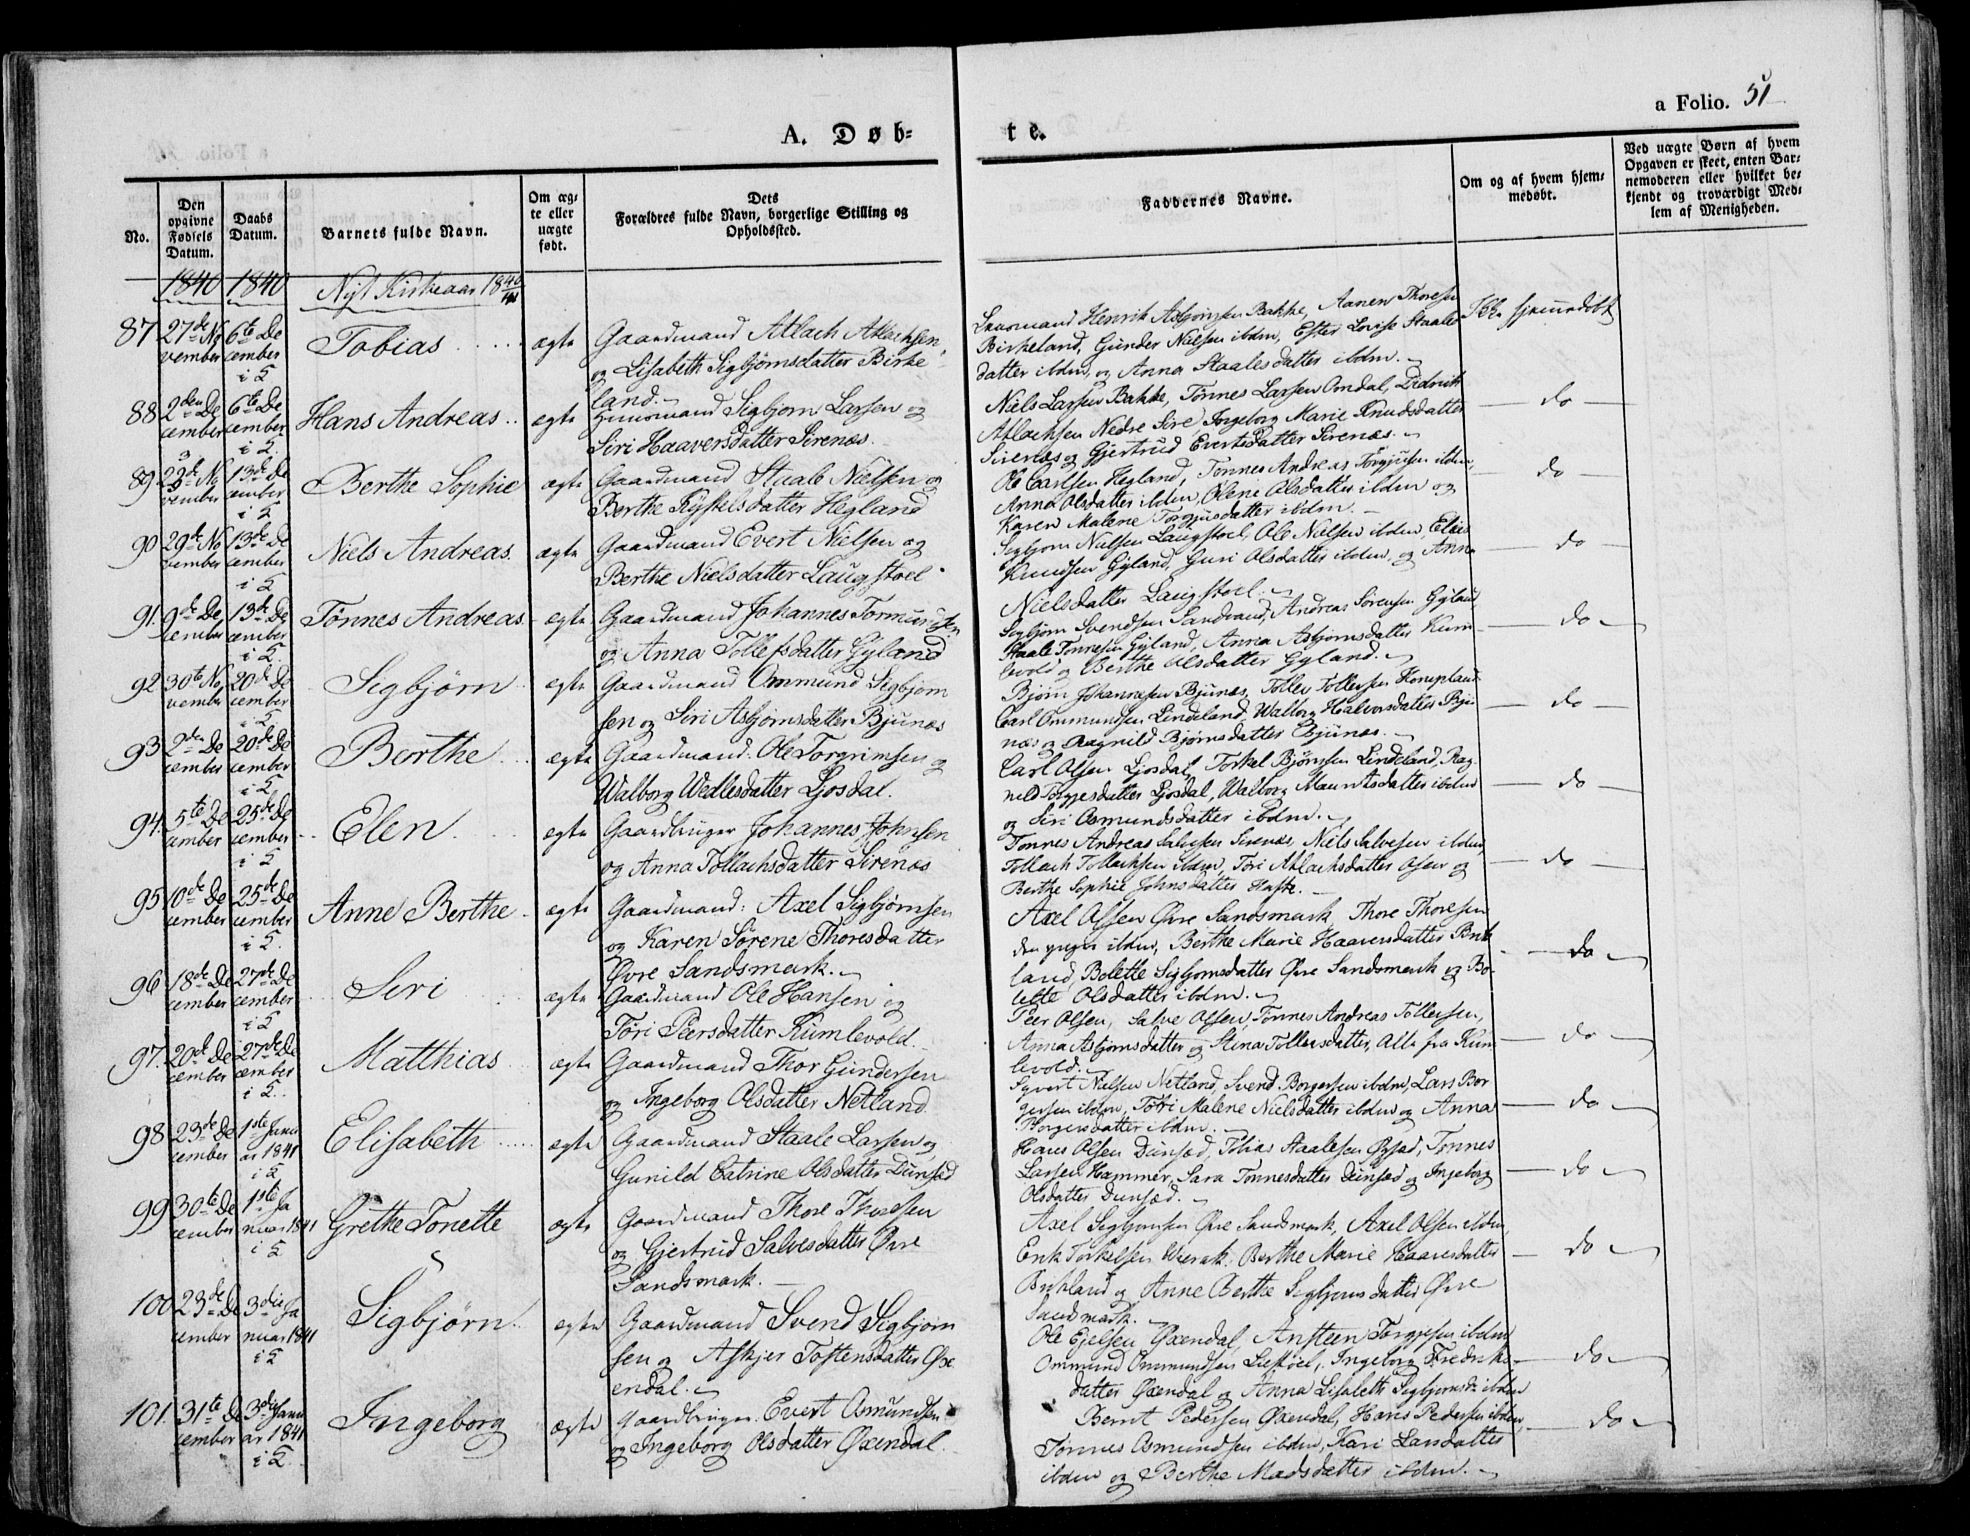 a Folio. 51
A. Døb=
te.
No.
Den opgivne Fødsels Datum.
Daabs Datum.
Barnets fulde Navn.
Om ægte eller uægte født.
Dets Forældres fulde Navn, borgerlige Stilling og Opholdssted.
Faddernes Navne.
Om og af hvem hjemmedøbt.
Ved uægte Børn af hvem Opgaven er skeet, enten Barnemoderen eller hvilket bekjendt og troværdigt Medlem af Menigheden.
1840 1840 Nyt Kirkeaar 1840/41
87 27de November 6te December i K Tobias ægte
Gaardmand Atlach Atlachsen
og Lisabeth Sigbjørnsdatter Birke
land.
Henrik Asbjørnsen Bakke, Aanen Thoresen
Birkeland, Gunder Nielsen ibdm, Ester Lovise Staales
datter ibdm, og Anna Staalesdatter ibdm.
Ikke hjemmedøbt
88 2den December 6te December i K. Hans Andreas ægte
Huusmand Sigbjørn Larsen og
Siri Haaversdatter Sirenæs.
Niels Larsen Bakke, Tønnes Larsen Omdal, Didrik
Atlachsen Nedre Sire, Ingeborg Marie Knudsdatter
Sirenæs og Gjertrud Evertsdatter Sirenæs.
do
89 29de November 13de December i K Berthe Sophie ægte
Gaardmand Staale Nielsen og
Berthe Kystelsdatter Hegland
Ole Carlsen Hegland, Tønnes Andreas Torgjusen ibdm,
Anna Olsdatter ibdm, Olene Olsdatter ibdm og
Karen Malene Torgjusdatter ibdm.
do
90 29de November 13de December i K Niels Andreas. ægte
Gaardmand Evert Nielsen og
Berthe Nielsdatter Laugstoel
Sigbjørn Nielsen Laugstoel, Ole Nielsen ibdm, Elias
Knudsen Gyland, Guri Olsdatter ibdm, og Anna
Nielsdatter Laugstoel.
do
91. 9de December 13de December i K. Tønnes Andreas. ægte
Gaardmand Johannes Tormundsen
og Anna Tollefsdatter Gyland
Sigbjørn Svendsen Sandvand, Andreas Sørensen Gyland
Staale Tønnesen Gyland, Anna Asbjørnsdatter Kum
levold og Berthe Olsdatter Gyland.
do
92 30te November 20de December i K Sigbjørn ægte
Gaardmand Ommund Sigbjørn
sen og Siri Asbjørnsdatter Bjunæs
Bjørn Johannesen Bjunæs, Tollev Tollevsen
Carl Ommundsen Lindeland, Walborg Halvorsdatter Bju
næs og Ragnild Bjørnsdatter Bjunæs.
do
93 2den December 20de December i K Berthe ægte
Gaardmand: Ole Torgrimsen og
Walborg Wedlesdatter Ljosdal.
Carl Olsen Ljosdal, Torkel Bjørnsen Lindeland, Rag
nild Torgjesdatter Ljosdal, Walborg Mauritsdatter ibdm
og Siri Osmundsdatter ibdm.
do
94. 5te December 25de December i K Elen ægte
Gaardbruger Johannes Johnsen
og Anna Tollachsdatter Sirenæs
Tønnes Andreas Salvesen Sirenæs, Niels Salvesen ibdm,
Tollach Tollachsen ibdm, Tøri Atlachsdatter Osen og
Berthe Sophie Johnsdatter
do
95 10de December 25de December i K. Anne Berthe ægte
Gaardmand: Axel Sigbjørnsen
og Karen Sørene Thoresdatter
Øvre Sandsmark.
Axel Olsen Øvre Sandsmark, Thore Thoresen
den yngre ibdm, Berthe Marie Haaversdatter Birk
land, Bolette Sigbjørnsdatter Øvre Sandsmark og Bo
lette Olsdatter ibdm.
do
96 18de December 27de December i K Siri ægte
Gaardmand Ole Hansen og
Tøri Peersdatter Kumlevold.
Peer Olsen, Salve Olsen, Tønnes Andreas Tollevsen,
Anna Asbjørnsdatter og Stina Tollevsdatter, Alle fra Kum
levold.
do
97. 20de December 27de December i K. Matthias ægte
Gaardmand Thor Gundersen
og Ingeborg Olsdatter Netland
Syvert Nielsen Netland, Svend Borgersen ibdm, Lars Bor
gersen ibdm, Tøri Malene Nielsdatter ibdm og Anna
Borgersdatter ibdm.
do
98 23de December 1ste Januar 1841 i K Elisabeth ægte
Gaardmand Staale Larsen og
Gunild Catrine Olsdatter Dunsæd
Hans Olsen Dunsæd, Tobias Staalesen Øysæd, Tønnes
Larsen Hammer, Sara Tønnesdatter Dunsæd og Ingeborg
Olsdatter Dunsæd.
do
99 30te December 1ste Januar 1841 i K Grethe Tonette ægte
Gaardmand Thore Thoresen
og Gjertrud Salvesdatter Øvre
Sandsmark.
Axel Sigbjørnsen Øvre Sandsmark, Axel Olsen ibdm,
Erik Torkelsen Berthe Marie Haaversdatter
Birkeland og Anne Berthe Sigbjørnsdatter Øvre
Sandsmark.
do
100 23de December 3die Januar 1841 i K Sigbjørn. ægte
Gaardmand Svend Sigbjørn
sen og Askjer Tostensdatter Øx
endal.
Ole Ejelsen Øxendal, Ansteen Torgjesen ibdm
Ommund Ommundsen Liestøel, Ingeborg Fredriks
datter Øxendal og Anna Lisabeth Sigbjørnsdr ibdm
do
101. 31te December 3die Januar 1841 i K Ingeborg ægte
Gaardbruger Evert Osmundsen
og Ingeborg Olsdatter Øxendal.
Berent Pedersen Øxendal, Hans Pedersen ibdm,
Tønnes Osmundsen ibdm, Kari Larsdatter
ibdm og Berthe Madsdatter ibdm.
do